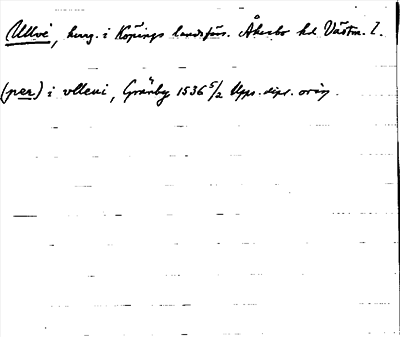 Ullvi, herrg. i Köpings landsförs. Åkerbo hd Västm. l.
(per) i vlleui, Granby 1536 5/2 Upps. dipl. orig.